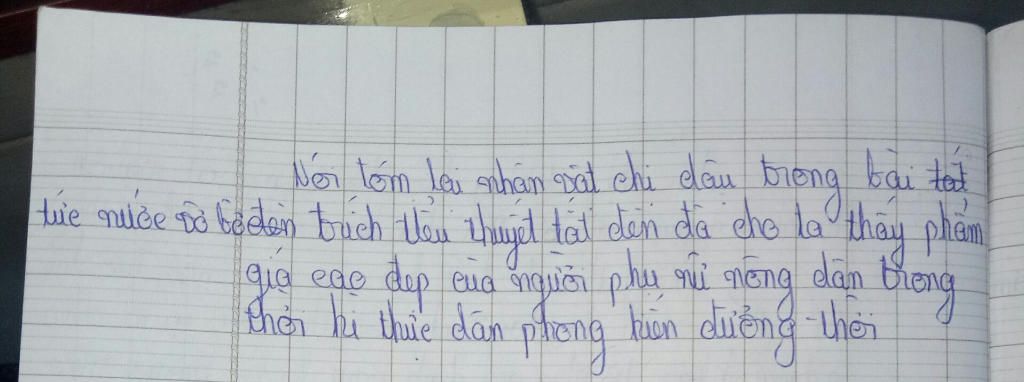 Nói tóm lại nhân vật chi dâu trong bài tắt
tức nước vỡ bờ đèn trích tiểu thuyết tắt đèn đã cho ta thấy phẩm
giá cao đẹp của người phụ nữ nông dân trong
thời kì thực dân phong kiến đương thời